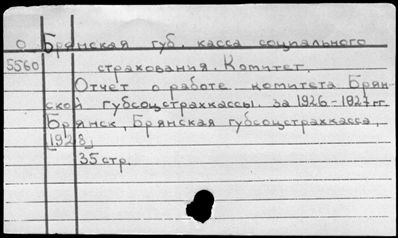 О Брянская губ. касса социального
5560 страхования. Комитет.
Отчет о работе комитета Брян-
ской губсоцстрахкассы. за 1926-1927 гг.
Брянск, Брянская губсоцстрахкасса,
[1928]
35 стр.